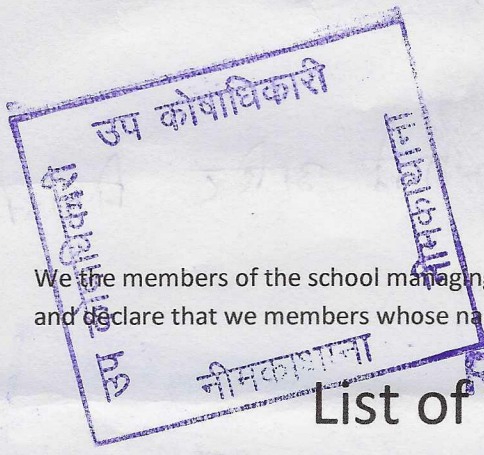 उप कोषाधिकारी
उप कोषाधिकारी
नीमकाथाना
We the members of the school managing
and declare that we members whose na
नीमकाथाना
List of